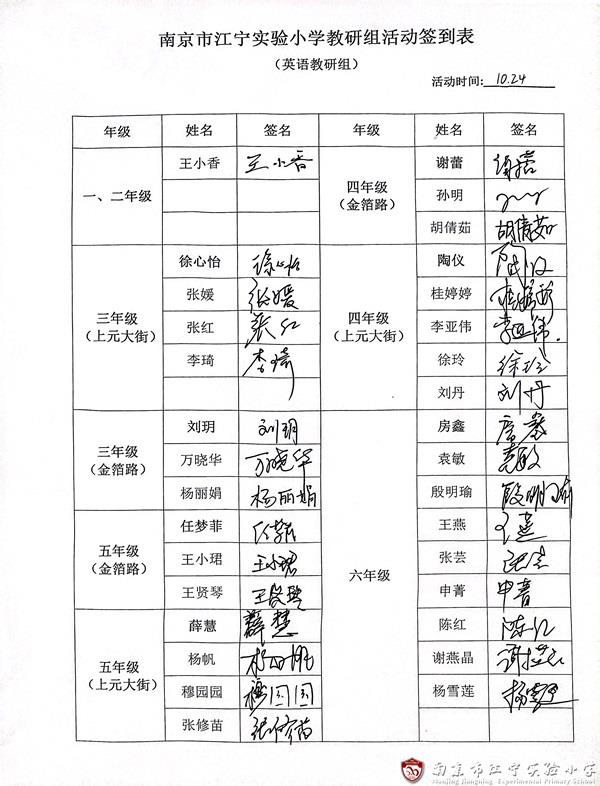 南京市江宁实验小学教研组活动签到表
（英语教研组）
活动时间: 10.24
年级 姓名 签名 年级 姓名 签名
一、二年级 王小香 王小香 四年级（金箔路） 谢蕾 谢蕾
孙明
胡倩茹 胡倩茹
三年级（上元大街） 徐心怡 徐心怡 四年级（上元大街） 陶仪 陶仪
张媛 张媛 桂婷婷 桂婷婷
张红 张红 李亚伟 李亚伟
李琦 李琦 徐玲 徐玲
刘丹 刘丹
三年级（金箔路） 刘玥 刘玥 六年级 房鑫 房鑫
万晓华 万晓华 袁敏 袁敏
杨丽娟 杨丽娟 殷明瑜 殷明瑜
五年级（金箔路） 任梦菲 王燕 王燕
王小珺 王小珺 张芸 张芸
王贤琴 王贤琴 申菁 申菁
五年级（上元大街） 薛慧 薛慧 陈红 陈红
杨帆 谢燕晶
穆园园 穆园园 杨雪莲
张修苗 张修苗
南京市江宁实验小学
Nanjing Jiangning Experimental Primary School